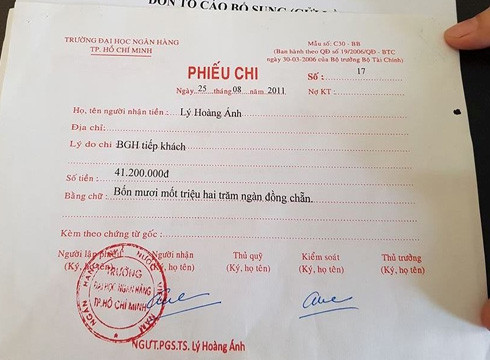 ĐƠN TỐ CÁO BỔ SUNG
TRƯỜNG ĐẠI HỌC NGÂN HÀNG
TP. HỒ CHÍ MINH
Mẫu số: C30 - BB
(Ban hành theo QĐ số 19/2006/QĐ - BTC
ngày 30-03-2006 của Bộ trưởng Bộ Tài Chính)
PHIẾU CHI
Số : 17
Ngày 25 tháng 08 năm 2011
Nợ KT :
Họ, tên người nhận tiền : Lý Hoàng Ánh
Địa chỉ:
Lý do chi BGH tiếp khách
Số tiền : 41.200.000đ
Bằng chữ : Bốn mươi mốt triệu hai trăm ngàn đồng chẵn.
Kèm theo chứng từ gốc :
Người lập phiếu Người nhận Thủ quỹ Kiểm soát Thủ trưởng
(Ký, họ tên) (Ký, họ tên) (Ký, họ tên) (Ký, họ tên) (Ký, họ tên)
NGÂN HÀNG NHÀ NƯỚC VIỆT NAM
TRƯỜNG
ĐẠI HỌC NGÂN HÀNG
TP.HỒ CHÍ MINH
NGƯT.PGS.TS. Lý Hoàng Ánh